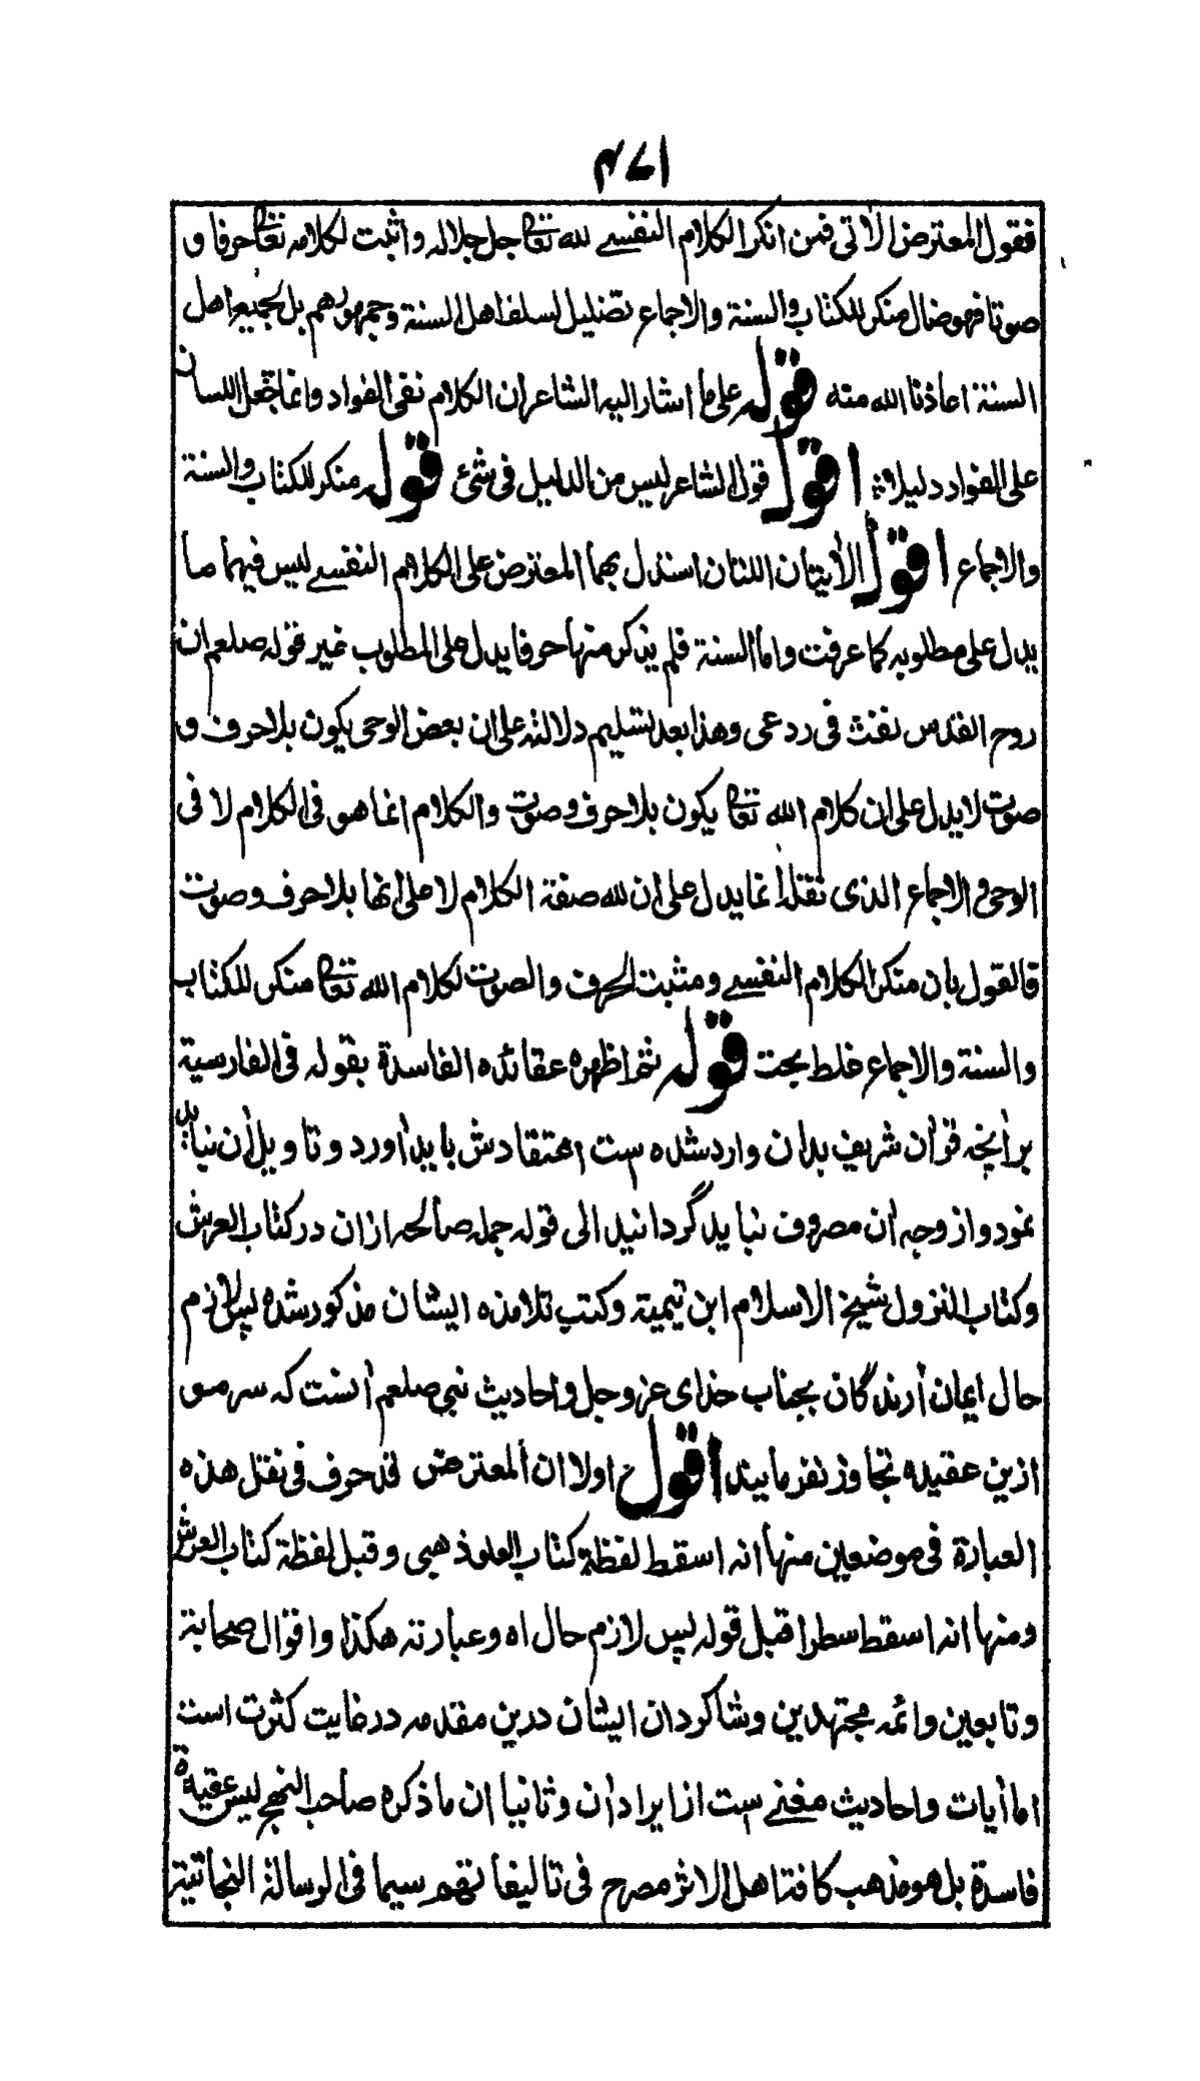 ١٧٤
فقول المعترض الآتى فمن انكر الكلام النفسے لله تعالى جل جلاله واثبت لكلامه تعالى حرفا و
صوتا فهو ضال منكر للكتاب والسنة والاجماع تضليل لسلف اهل السنة وجمهورهم بل لجميع اهل
السنة اعاذنا الله منه قوله على ما اشار اليه الشاعر ان الكلام نفى الفواد وانما جعل اللسان
على الفواد دليلا اقول قول الشاعر ليس من الدليل فى شئ قوله منكر للكتاب والسنة
والاجماع اقول الأيتان اللتان استدل بهما المعترض على الكلام النفسے ليس فيهما ما
يدل على مطلوبه كما عرفت واما السنة فلم يذكر منها حرفا يدل على المطلوب غير قوله صلعم ان
روح القدس نفث فى ردعى وهذا بعد تسليم دلالته على ان بعض الوحى يكون بلا حرف و
صوت لا يدل على ان كلام الله تعالى يكون بلا حرف وصوت والكلام انما هو فى الكلام لا فى
الوحى والاجماع الذى نقله انما يدل على ان لله صفة الكلام لا على انها بلا حرف وصوت
فالقول بان منكر الكلام النفسے ومثبت الحرف والصوت لكلام الله تعالى منكر للكتاب
والسنة والاجماع غلط بحت قوله ثم اظهره عقائده الفاسدة بقوله فى الفارسية
برآنچه قرآن شريف بدان وارد شده ست اعتقادش بايد آورد وتاويل آن نبايد
نمود واز وجه آن مصروف نبايد گردانيد الى قوله جمله صالحه ازان در كتاب العرش
وكتاب النزول شيخ الاسلام ابن تيمية وكتب تلامذه ايشان مذكور شده پس لازم
حال ايمان آرندگان بجناب خداى عز وجل واحاديث نبى صلعم آنست كه سرمو
ازين عقيده تجاوز نفرمايند اقول اولا ان المعترض قد حرف فى نقل هذه
العبارة فى موضعين منها انه اسقط لفظة كتاب العلو ذهبى وقبل لفظة كتاب العرش
ومنها انه اسقط سطرا قبل قوله پس لازم حال اه وعبارته هكذا واقوال صحابة
وتابعين وائمه مجتهدين وشاكردان ايشان درين مقدمه در غايت كثرت است
اما آيات واحاديث مغنے ست از ايراد آن وثانيا ان ما ذكره صاحب النهج ليس عقيدة
فاسدة بل هو مذهب كافة اهل الاثر مصرح فى تاليفاتهم سيما فى الرسالة النجاتية